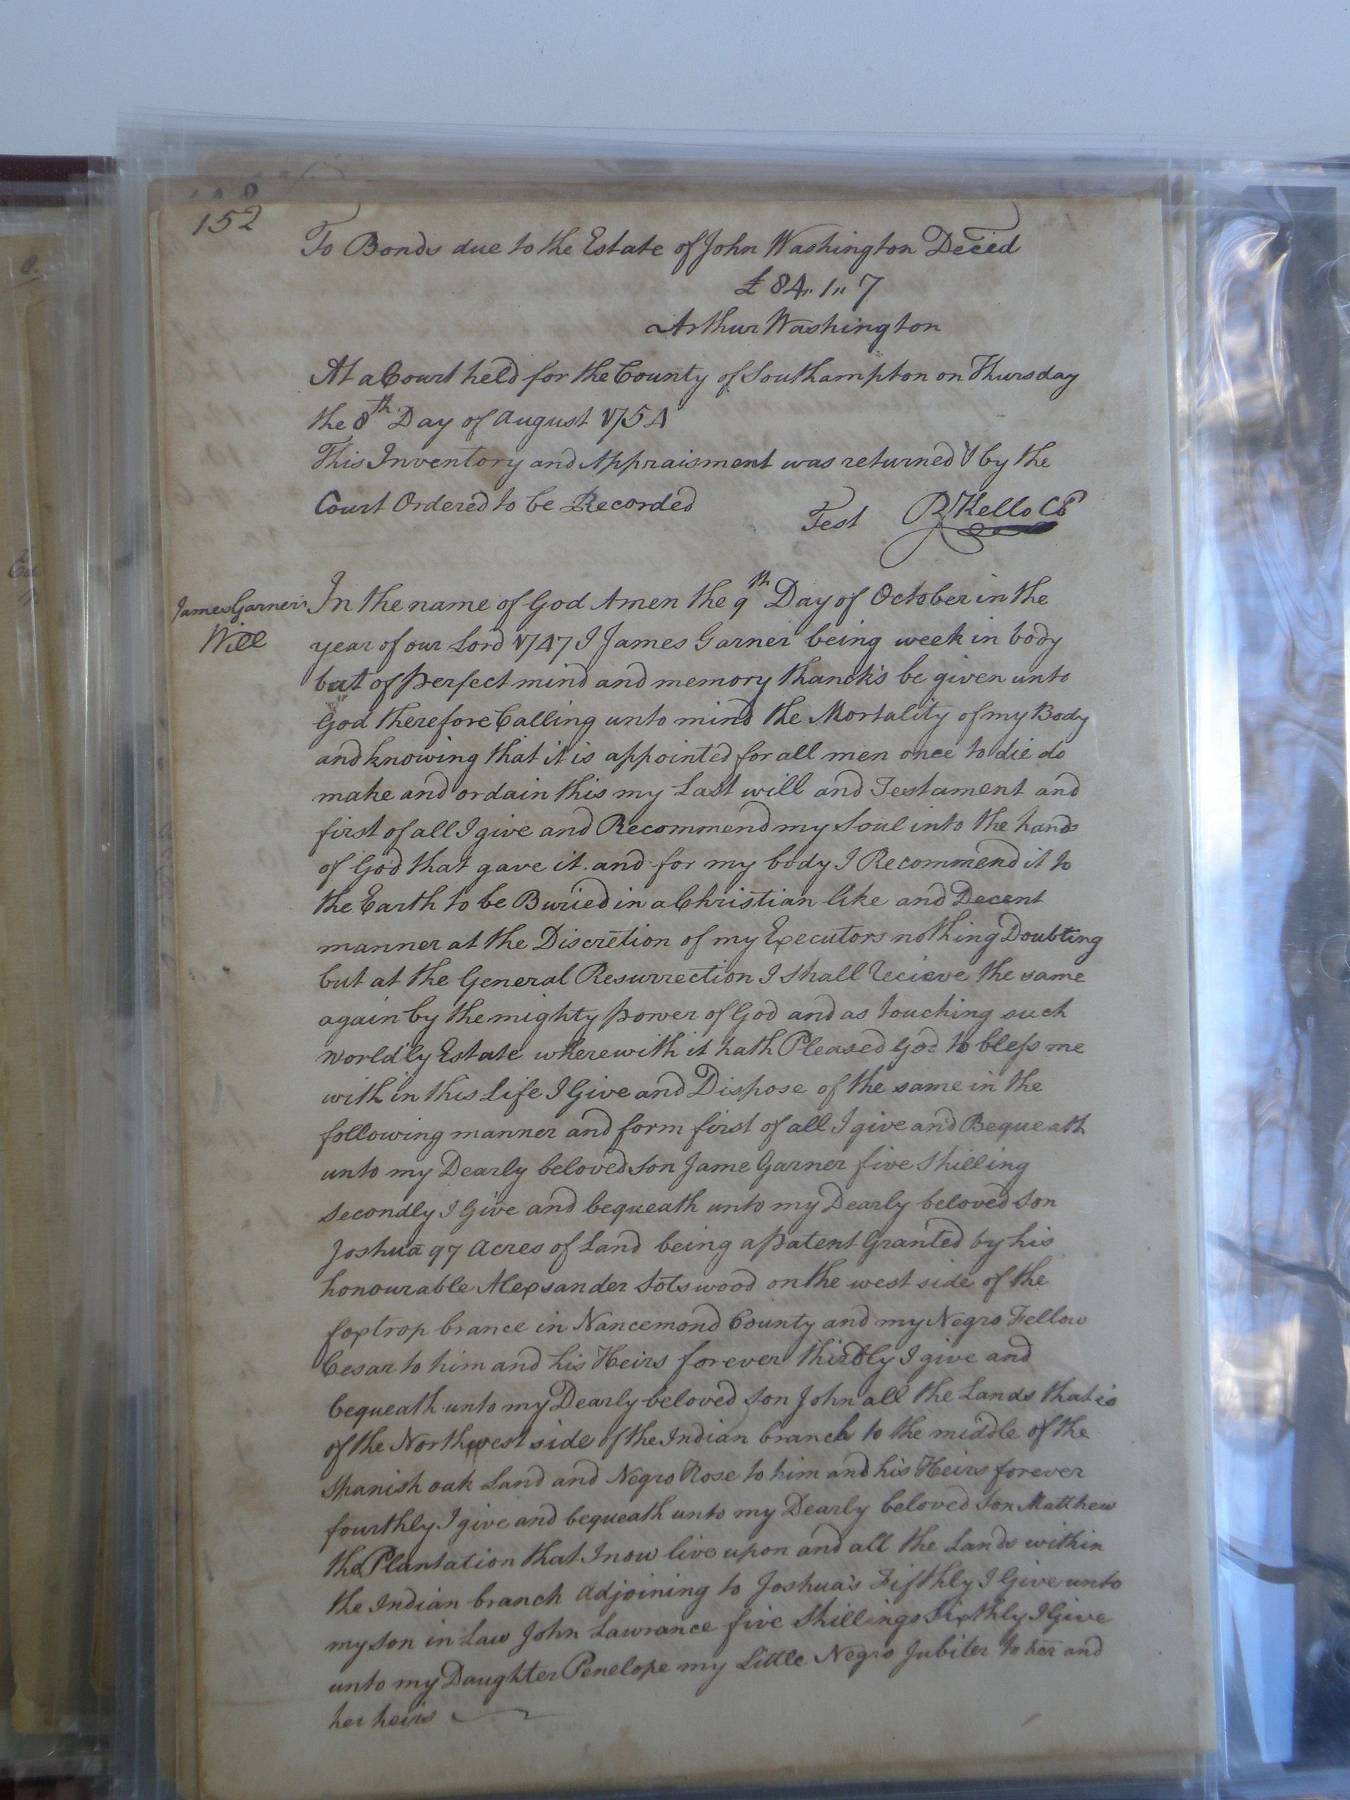 152
To Bonds due to the Estate of John Washington Deced
£ 84,, 1,, 7
Arthur Washington
At a Court held for the County of Southampton on Thursday
the 8th Day of August 1754
This Inventory and Appraisment was returned & by the
Court Ordered to be Recorded
Test RKello CC
James Garner's
Will
In the name of God Amen the 9th Day of October in the
year of our Lord 1747 I James Garner being week in body
but of perfect mind and memory thanck's be given unto
God therefore Calling unto mind the Mortality of my Body
and knowing that it is appointed for all men once to die do
make and ordain this my Last will and Testament and
first of all I give and Recommend my Soul into the hands
of God that gave it. and for my body I Recommend it to
the Earth to be Buried in a Christian like and Decent
manner at the Discretion of my Executors nothing Doubting
but at the General Resurrection I shall recieve the same
again by the mighty power of God and as touching such
worldly Estate wherewith it hath Pleased God to bless me
with in this Life I Give and Dispose of the same in the
following manner and form first of all I give and Bequeath
unto my Dearly beloved son Jame Garner five shilling
Secondly I Give and bequeath unto my Dearly beloved son
Joshua 97 Acres of Land being a patent Granted by his
honourable Alexsander Sotswood on the west side of the
foxtrop brance in Nancemond County and my Negro Fellow
Cesar to him and his Heirs forever thirdly I give and
bequeath unto my Dearly beloved son John all the Lands that is
of the Northwest side of the Indian branch to the middle of the
Spanish oak Land and Negro Rose to him and his Heirs forever
fourthly I give and bequeath unto my Dearly beloved son Matthew
the Plantation that I now live upon and all the Lands within
the Indian branch adjoining to Joshua's Fifthly I Give unto
my son in Law John Lawrance five shillings Sixthly I Give
unto my Daughter Penelope my Little Negro Jubiter to her and
her heirs